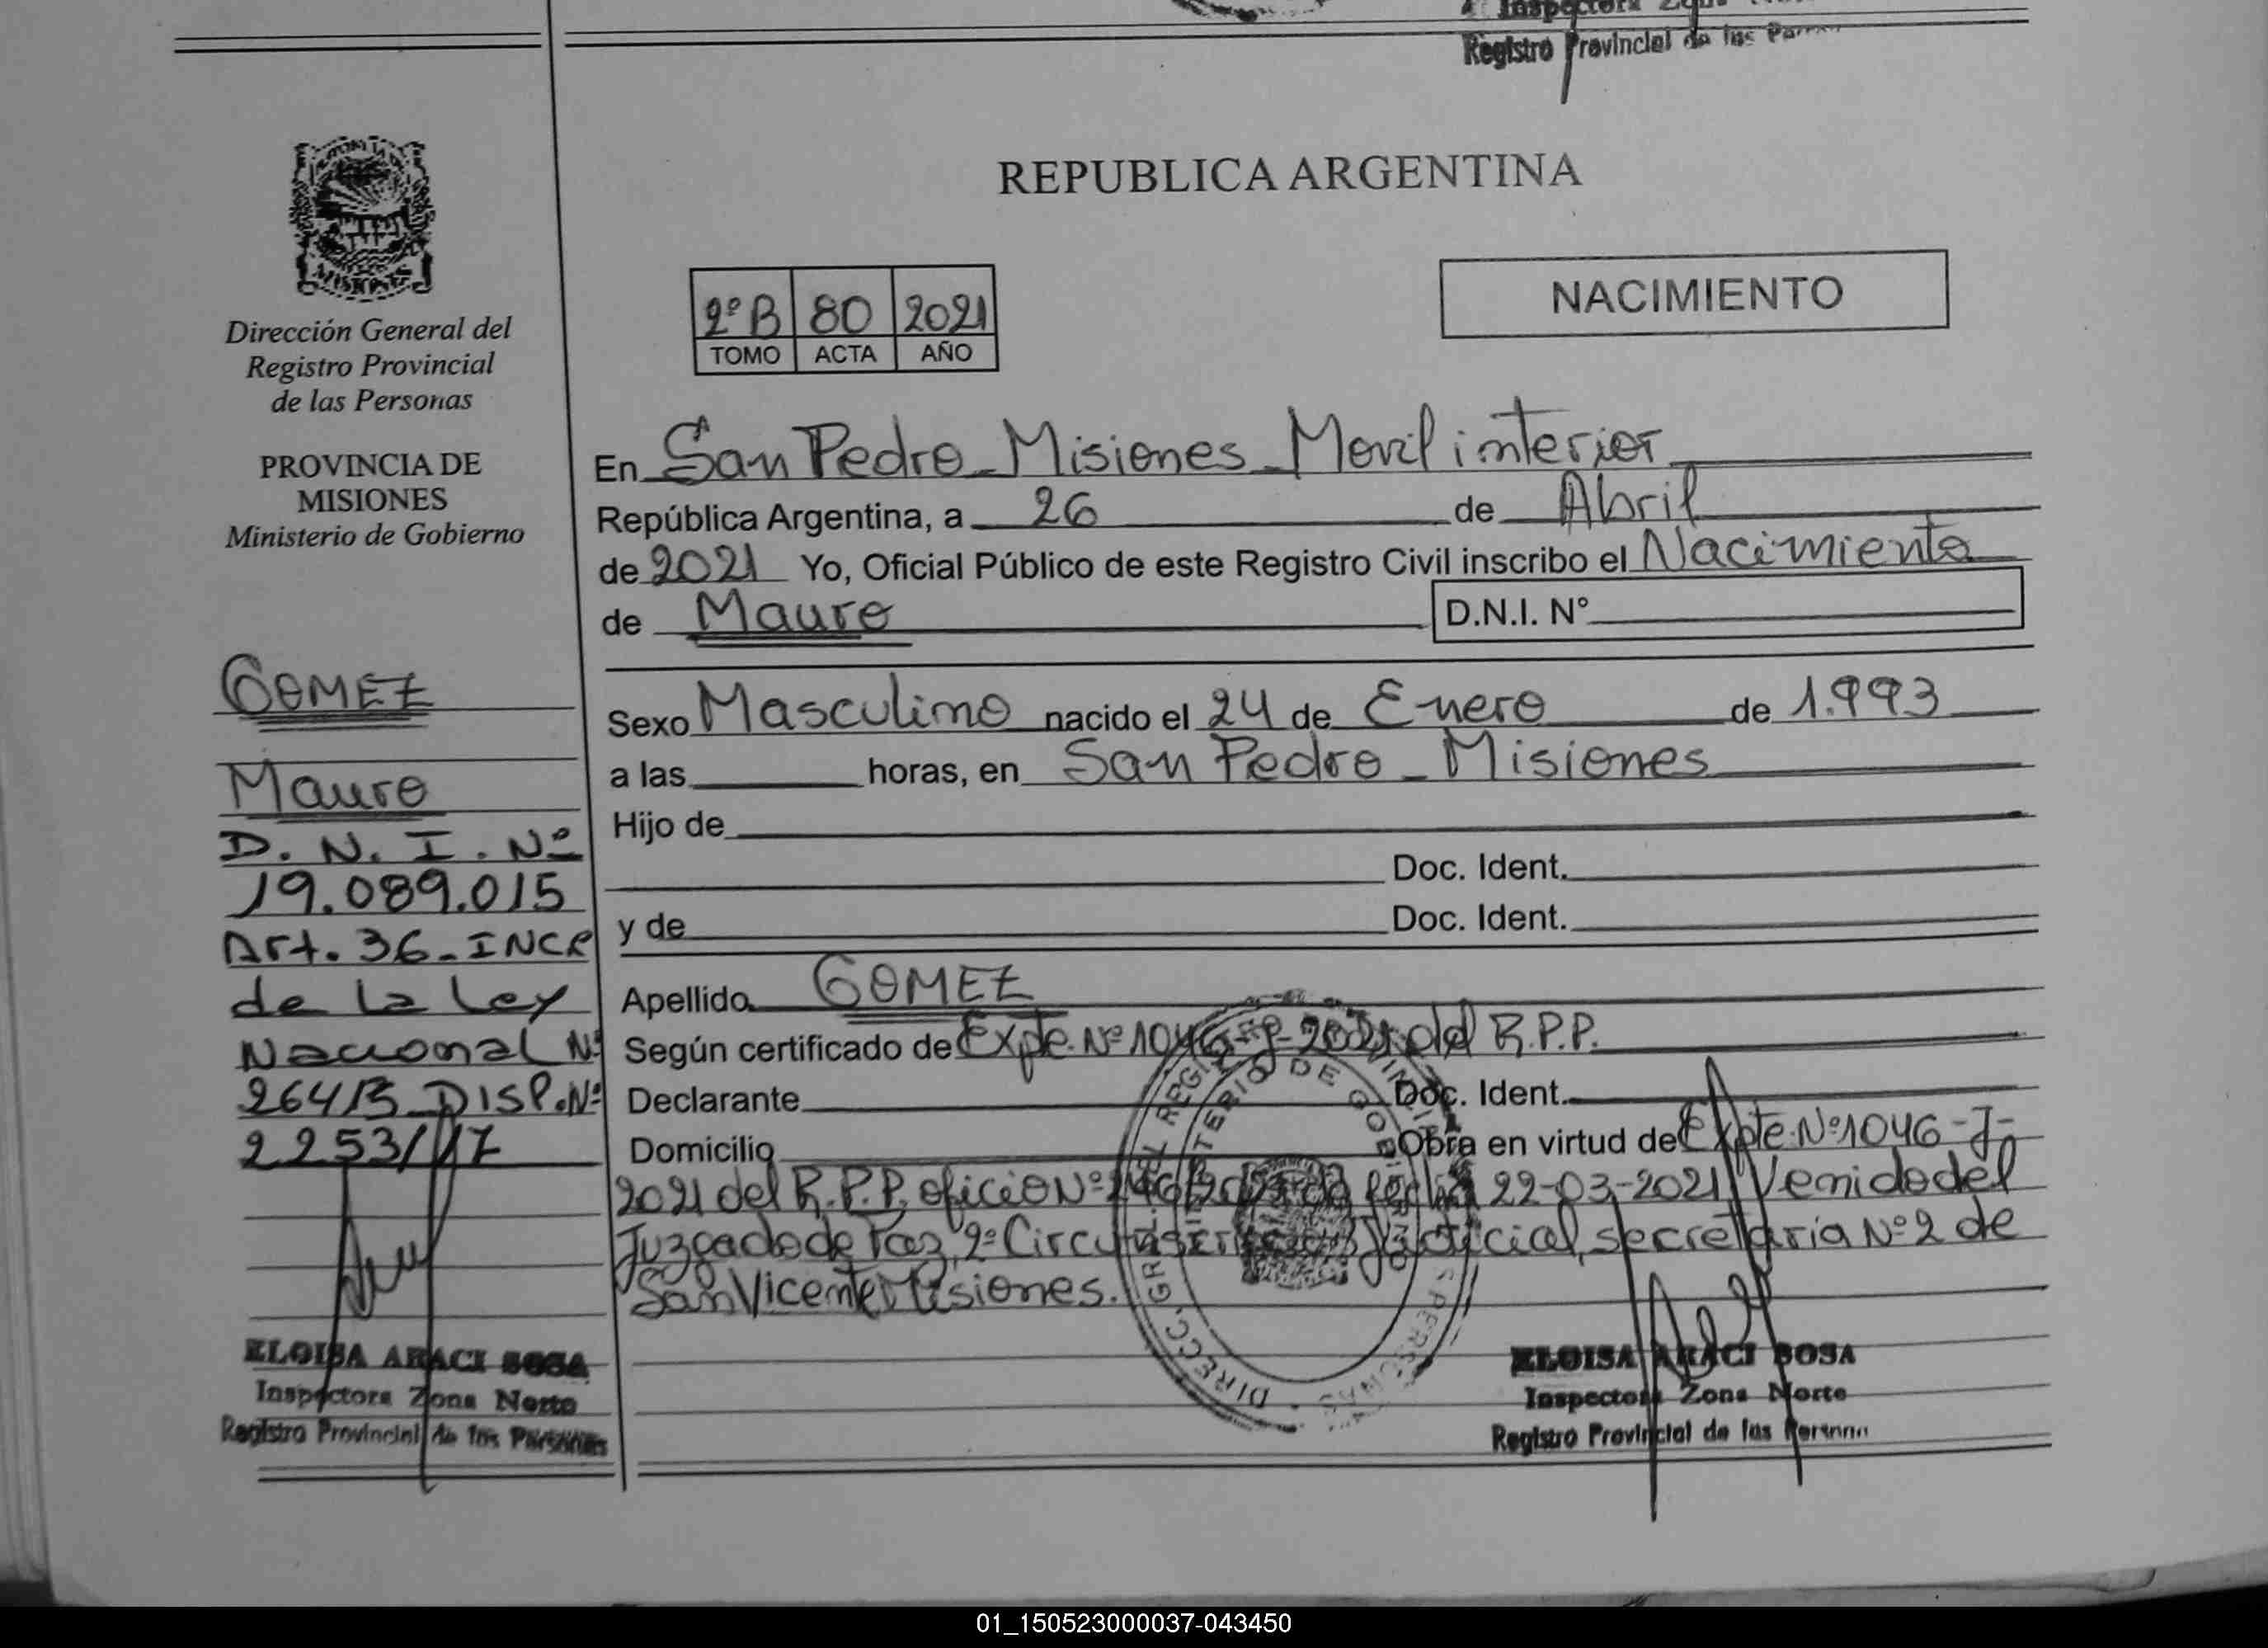 Registro Provincial de las
REPUBLICA ARGENTINA
Dirección General del
Registro Provincial
de las Personas
PROVINCIA DE
MISIONES
Ministerio de Gobierno
2º B 80 2021
TOMO ACTA AÑO
NACIMIENTO
En San Pedro - Misiones - Movil interior
República Argentina, a 26 de Abril
de 2021 Yo, Oficial Público de este Registro Civil inscribo el Nacimiento
de Mauro D.N.I. Nº
Sexo Masculino nacido el 24 de Enero de 1.993
a las horas, en San Pedro - Misiones
Hijo de
Doc. Ident.
y de Doc. Ident.
Apellido GOMEZ
Según certificado de Expte. Nº 1046-J-2021 del R.P.P.
Declarante Doc. Ident.
Domicilio Obra en virtud de Expte. Nº 1046-J-
2021 del R.P.P. oficio Nº fecha 22-03-2021 Venido del
Juzgado de Paz 2º Judicial, secretaria Nº 2 de
San Vicente Misiones.
GOMEZ
Mauro
D.N.I. Nº
19.089.015
Art. 36 - INCR
de la Ley
Nacional Nº
26413 DISP. Nº
2253/17
ELOISA ARACI SOSA
Inspectora Zona Norte
Registro Provincial de las Personas
ELOISA ARACI SOSA
Inspectora Zona Norte
Registro Provincial de las Personas
01_150523000037-043450